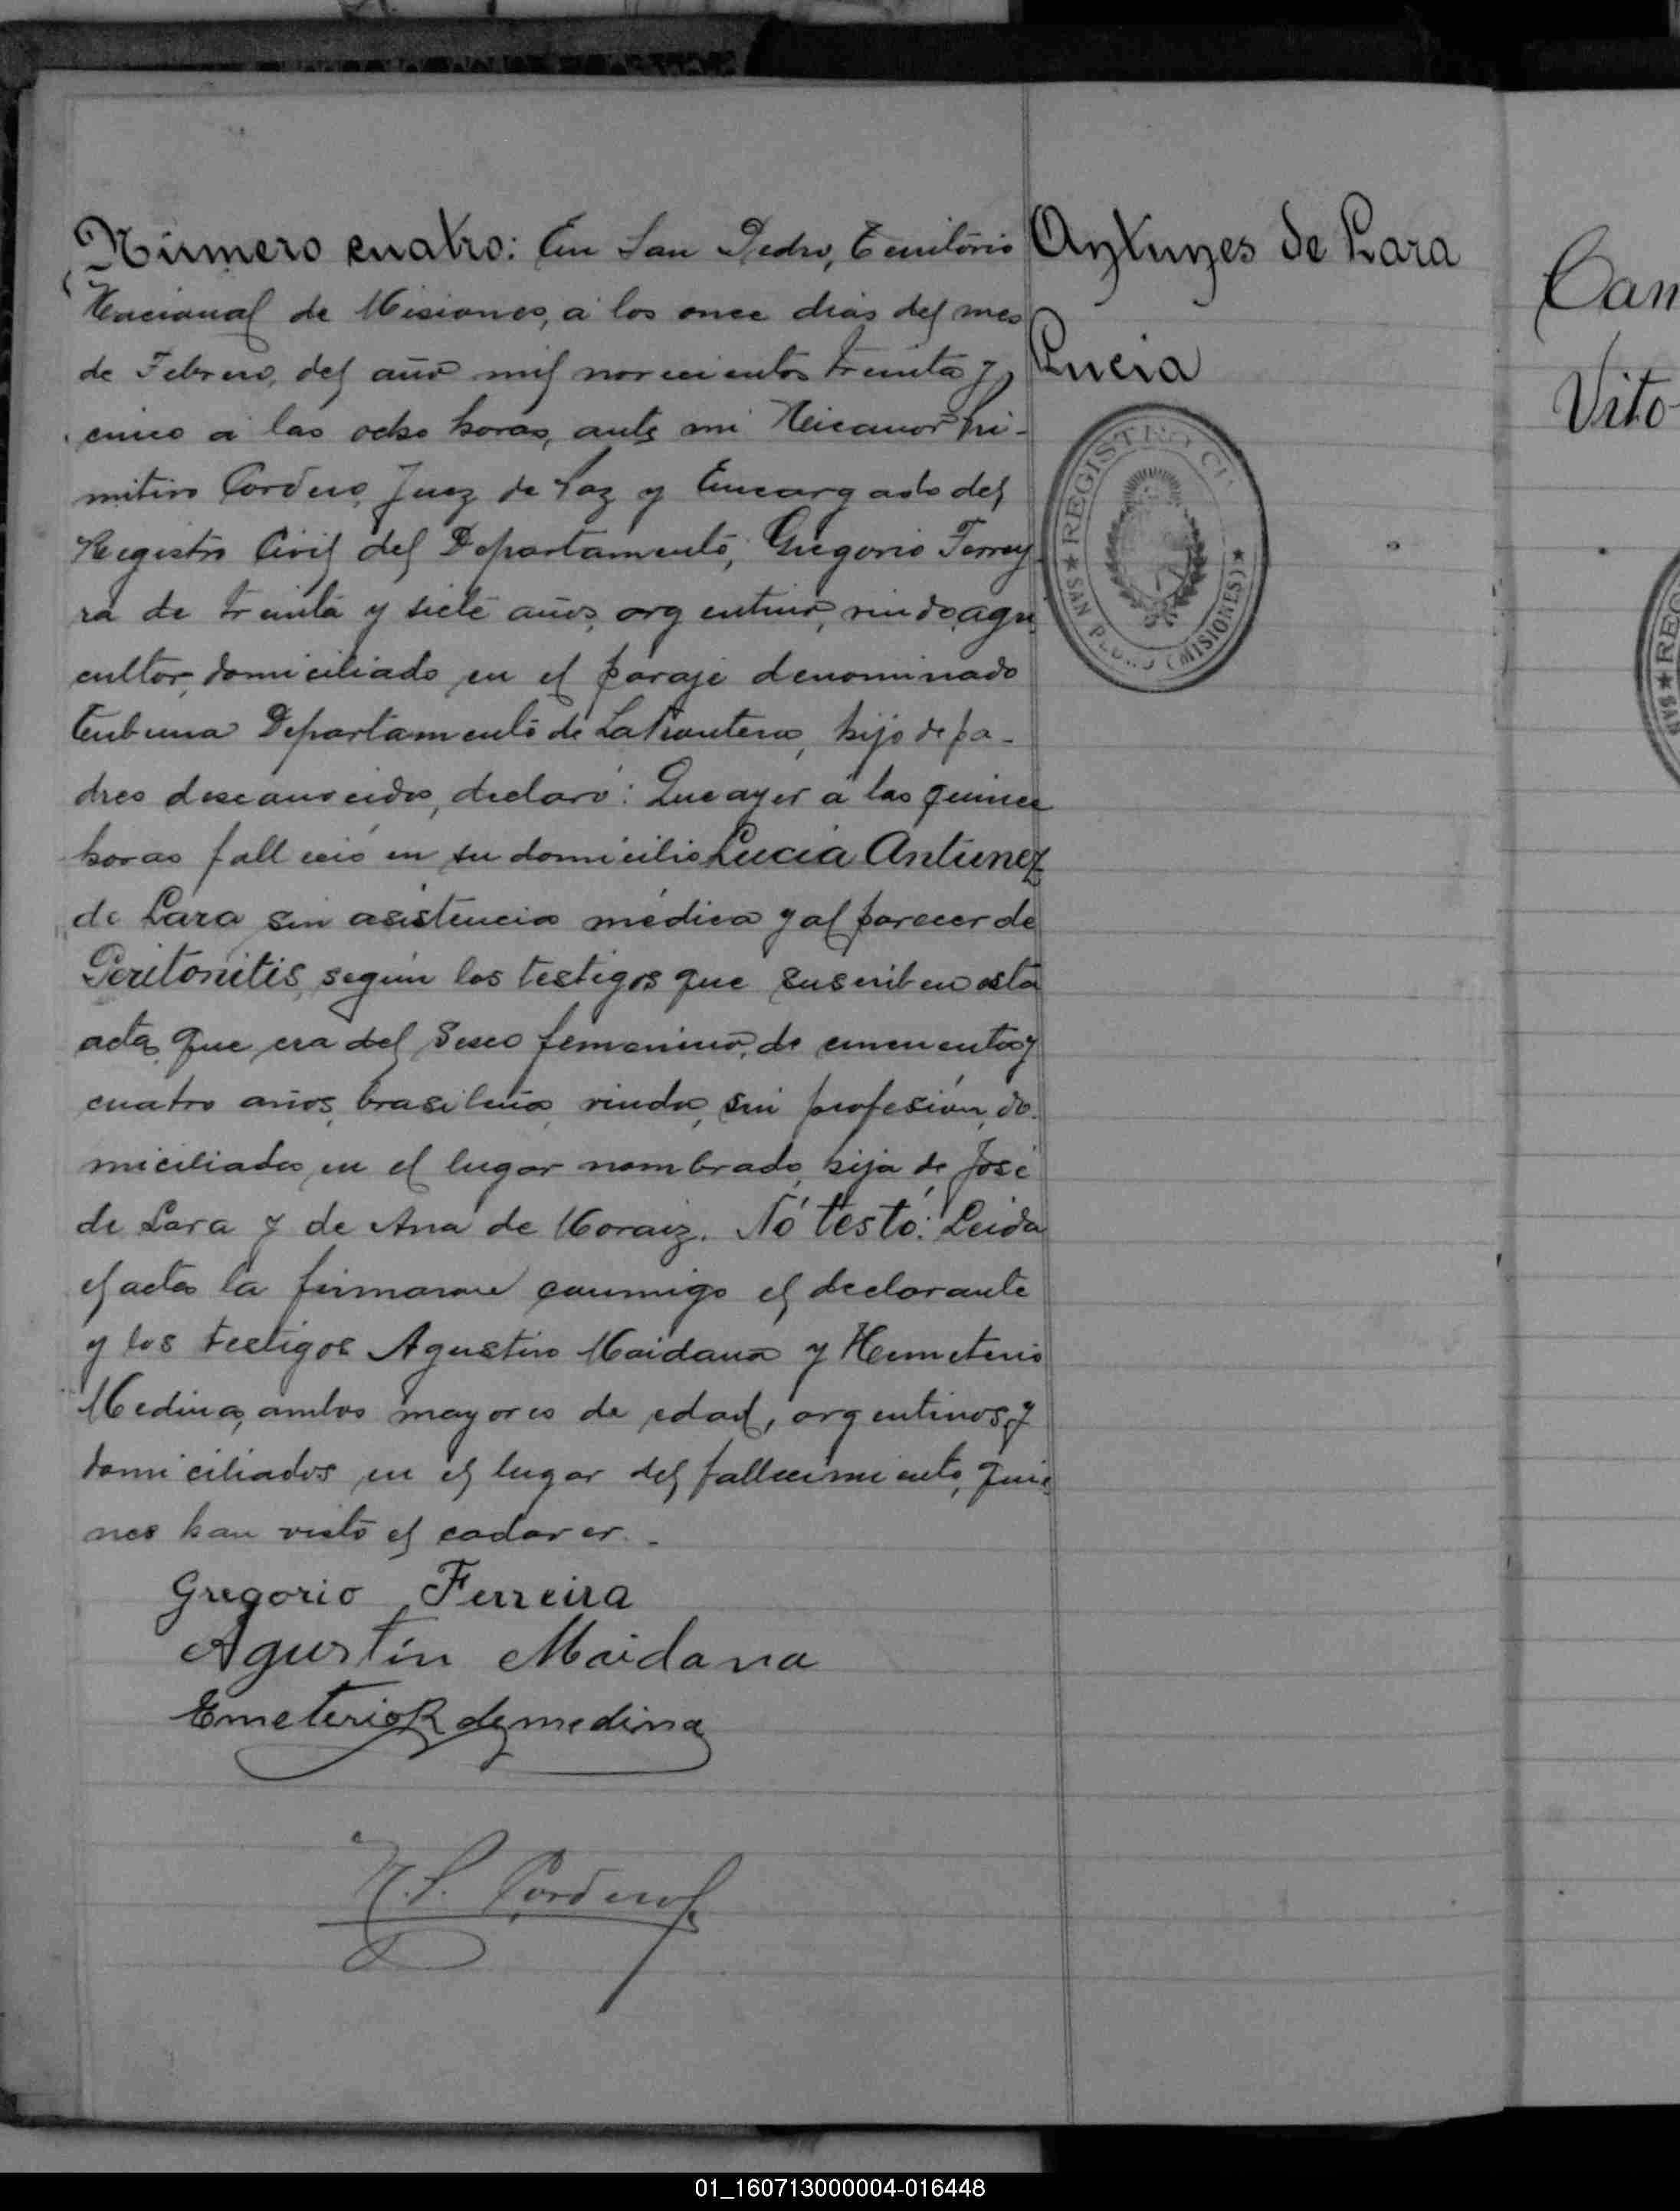 Número cuatro: En San Pedro, Territorio
Nacional de Misiones, a los once dias del mes
de Febrero, del año mil novecientos treinta y
cinco a las ocho horas, ante mi Nicanor Pri-
mitivo Cordero, Juez de Paz y Encargado del
Registro Civil del Departamento, Gregorio Ferrey
ra de treinta y siete años, argentino, viudo, agri
cultor, domiciliado en el paraje denominado
Departamento de La Frontera, hijo de pa-
dres desconocidos, declaró: Que ayer a las quince
horas falleció en su domicilio Lucía Antunez
de Lara sin asistencia médica y al parecer de
Peritonitis, según los testigos que suscriben esta
acta, que era del sexo femenino, de cincuenta y
cuatro años, brasileña, viuda, sin profesión, do-
miciliada en el lugar nombrado, hija de José
de Lara y de Ana de Moraiz. Nó testó. Leida
el acta la firmaron conmigo el declarante
y los testigos Agustin Maidana y Hemeterio
Medina, ambos mayores de edad, argentinos, y
domiciliados en el lugar del fallecimiento, quie
nes han visto el cadaver.-
Gregorio Ferreira
Agustín Maidana
Emeterio R de medina
N. P. Cordero
Antunes de Lara
Lucia
REGISTRO CI
★ SAN PEDRO (MISIONES) ★
Can
Vito
01_160713000004-016448